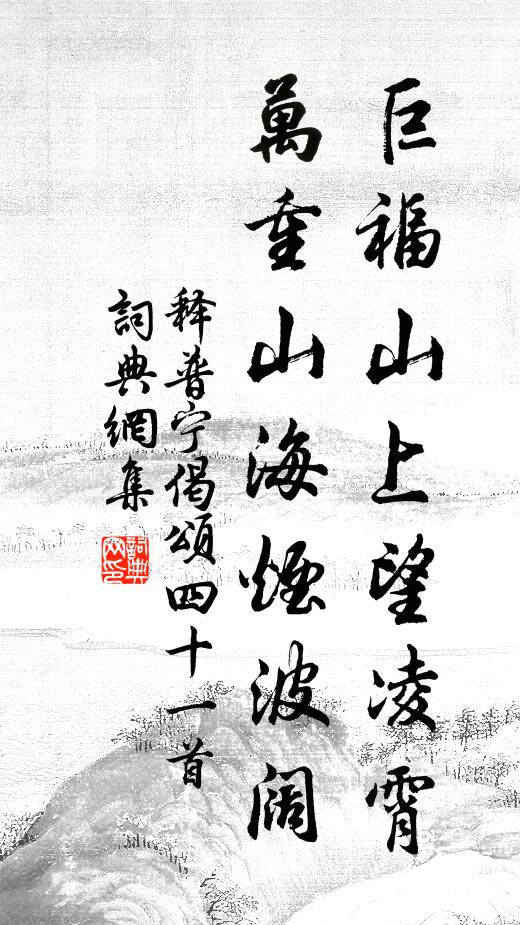 巨福山上望凌霄
萬重山海煙波阔
释普宁偈頌四十一首
詞典網集
詞典網印